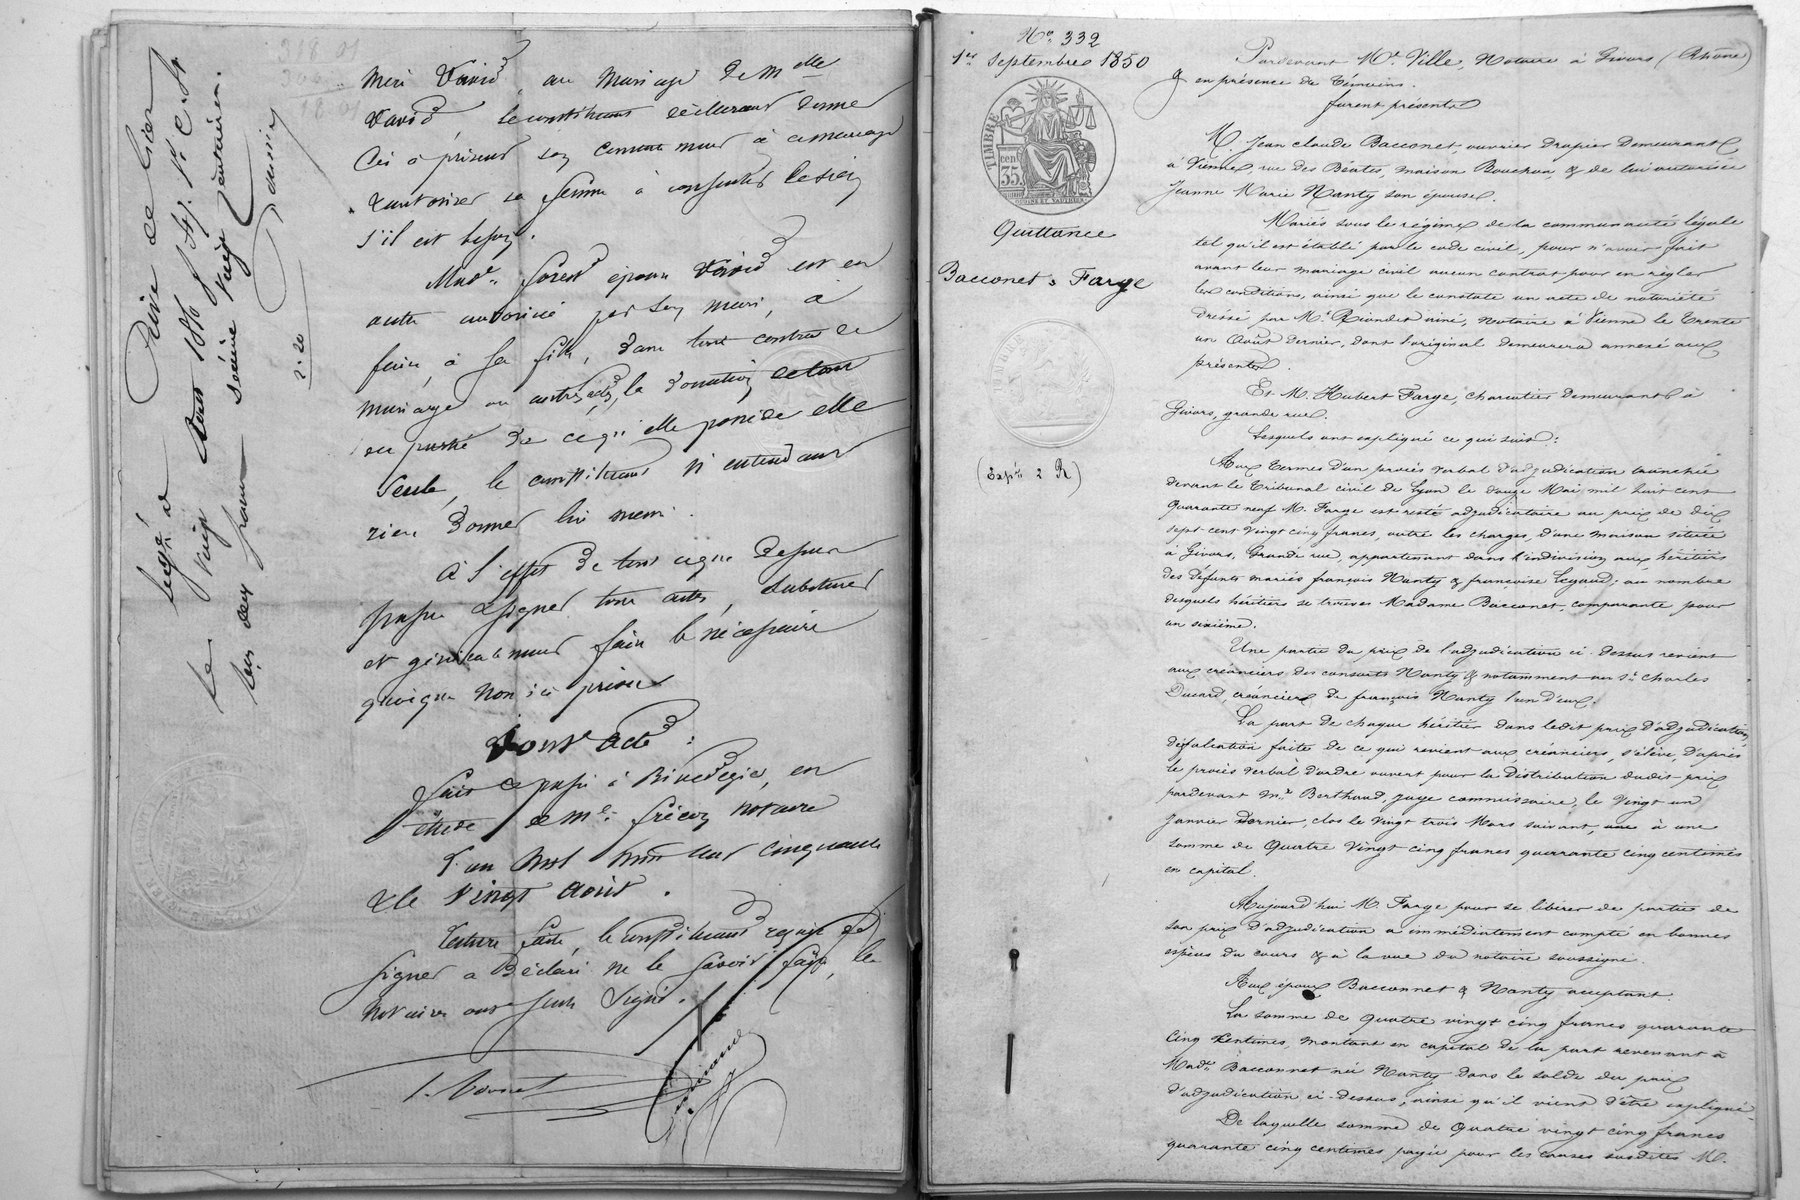 mari David, au mariage de Melle
David le constituant déclarant donner
dès à présent son consentement à ce mariage
& autoriser sa femme à consentir le sien
s'il est besoin.
Made. forest épouse David est en
outre autorisée par son mari, à
faire, à sa fille, dans tout contrat de
mariage ou autres actes, la donation de tout
ou partie de ce qu'elle possède elle
seule, le constituant n'entendant
rien donner lui même.
à l'effet de tout ce que dessus
passer & signer tous actes, substituer
et généralement faire le nécessaire
quoique non ici prévu
Dont Acte :
fait & passé à Rivedegier, en
l'étude de Me. frécon notaire
L'an mil huit cent cinquante
& le vingt août.
Lecture faite, le constituant requis de
signer a déclaré ne le savoir faire, les
notaires ont seuls signé.
2.20
No. 332
1er Septembre 1850
TIMBRE
cen
35
Quittance
Bacconet à Farge
(Expén 2 R)
Pardevant Me. Ville, Notaire à Givors (Rhône)
& en présence de témoins.
furent présents
M. Jean claude Bacconet, ouvrier drapier demeurant
à Vienne, rue des Béates, maison Bouchu, & de lui autorisée
Jeanne Marie Nanty son épouse.
Mariés sous le régime de la communauté légale
tel qu'il est établi par le code civil, pour n'avoir fait
avant leur mariage civil aucun contrat pour en régler
les conditions ainsi que le constate un acte de notoriété
dressé par Me. Riondet ainé, notaire à Vienne le trente
un Août dernier, dont l'original demeurera annexé aux
présentes.
Et M. Hubert Farge, charcutier demeurant à
Givors, grande rue.
Lesquels ont expliqué ce qui suit :
Aux termes d'un procès verbal d'adjudication tranchée
devant le Tribunal civil de Lyon le douze Mai mil huit cent
quarante neuf M. Farge est resté adjudicataire au prix de dix
sept cent vingt cinq francs, outre les charges, d'une maison située
à Givors, Grande rue, appartenant dans l'indivision aux héritiers
des défunts mariés françois Nanty & françoise Legaud; au nombre
desquels héritiers se trouve Madame Bacconet, comparante pour
un sixième.
Une partie du prix de l'adjudication ci-dessus revient
aux créanciers des consorts Nanty & notamment au Sr. Charles
Ducard, créancier de françois Nanty l'un d'eux.
La part de chaque héritier dans ledit prix d'adjudication,
défalcation faite de ce qui revient aux créanciers, s'élève, d'après
le procès verbal d'ordre ouvert pour la distribution dudit prix
pardevant Mr. Berthaud, juge commissaire, le vingt un
Janvier dernier, clos le vingt trois Mars suivant, à une
somme de Quatre vingt cinq francs quarante cinq centimes
en capital.
Aujourd'hui M. Farge pour se libérer de partie de
son prix d'adjudication a immédiatement compté en bonnes
espèces du cours & à la vue du notaire soussigné.
Aux époux Bacconnet & Nanty acceptant.
La somme de Quatre vingt cinq francs quarante
cinq centimes, montant en capital de la part revenant à
Made. Bacconnet née Nanty dans le solde du prix
d'adjudication ci-dessus, ainsi qu'il vient d'être expliqué
De laquelle somme de Quatre vingt cinq francs
quarante cinq centimes payée pour les causes susdites M.